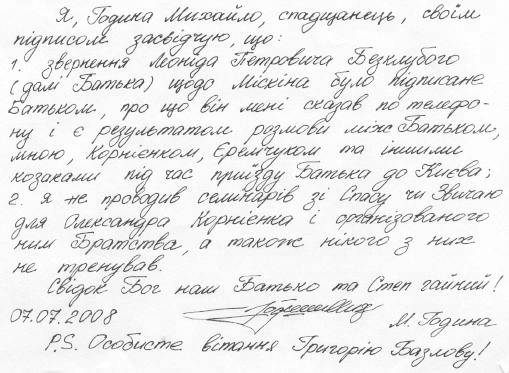 Я, Година Михайло, спадщанець, своїм
підписом засвідчую, що:
1. звернення Леоніда Петровича Безклубого
(далі Батька) щодо Міскіна було підписане
Батьком, про що він мені сказав по телефо-
ну і є результатом розмови між Батьком,
мною, Корнієнком, Єремчуком та іншими
козаками під час приїзду Батька до Києва;
2. я не проводив семінарів зі Спасу чи Звичаю
для Олександра Корнієнка і організованого
ним Братства, а також нікого з них
не тренував.
Свідок Бог наш Батько та Степ гайний!
07.07.2008
М. Година
P.S. Особисте вітання Григорію Базлову!